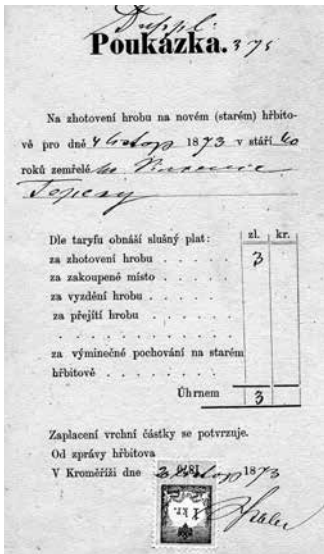 Duppl.
Poukázka. 375
Na zhotovení hrobu na novém (starém) hřbito-
vě pro dne 4 listop 1873 v stáří 40
roků zemřelé
Dle taryfu obnáší slušný plat: zl. kr.
za zhotovení hrobu . . . . . 3
za zakoupené místo . . . . .
za vyzdění hrobu . . . . .
za přejítí hrobu . . . . .
. . . . . . . . . . .
za výminečné pochování na starém
hřbitově . . . . . . . .
Úhrnem 3
Zaplacení vrchní částky se potvrzuje.
Od zprávy hřbitova
V Kroměříži dne 3 listop 1873
1 kr.